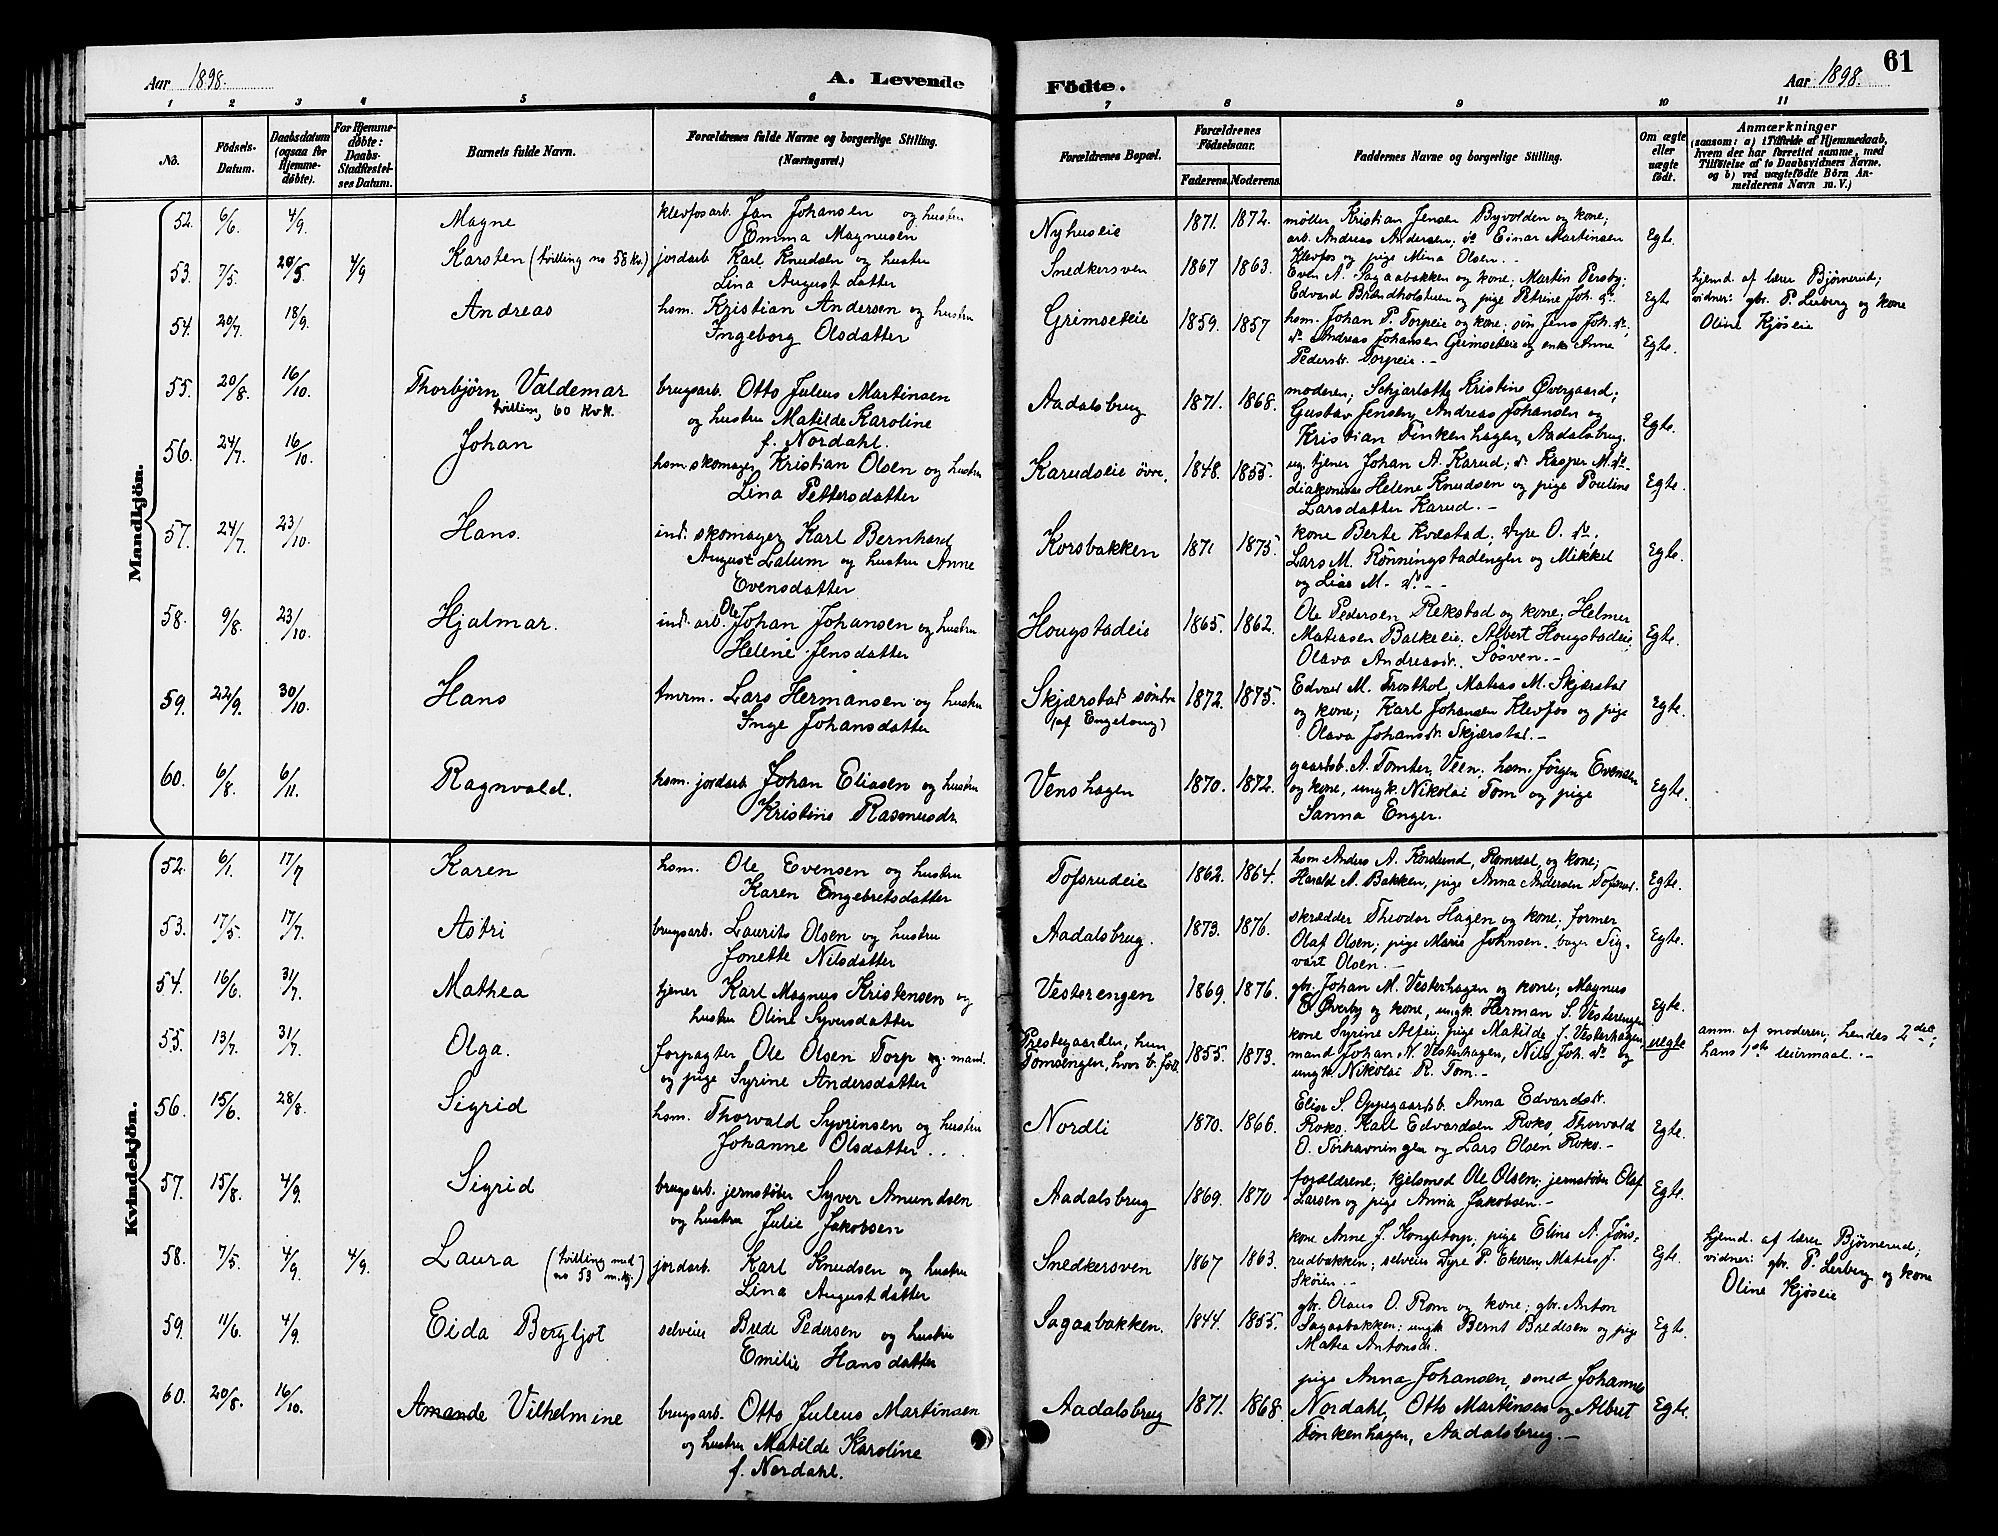 Aar 1898. A. Levende Födte. Aar 1898. 61
1 2 3 4 5 6 7 8 9 10 11
No. Födsels-Datum. Daabsdatum (ogsaa for Hjemme-døbte). For Hjemme-døbte: Daabs-Stadfæstel-ses Datum. Barnets fulde Navn. Forældrenes fulde Navne og borgerlige Stilling. (Næringsvei.) Forældrenes Bopæl. Forældrenes Födselsaar. Faderens. Moderens. Faddernes Navne og borgerlige Stilling. Om ægte eller uægte født. Anmærkninger (saasom: a) i Tilfælde af Hjemmedaab, hvem der har forrettet samme, med Tilføielse af to Daabsvidners Navne, og b) ved uægtefödte Börn An-melderens Navn m. V.)
Mandkjön.
52. 6/6. 4/9. Magne klevfosarb. Jan Johansen og hustru Nyhuseie 1871. 1872. møller Kristian Jensen Byvolden og kone; Egte.
Emma Magnusen arb. Andreas Andersen; do Einar Martinsen
Klevfos og pige Mina Olsen. -
53. 7/5. 20/5 4/9 Karsten (tvilling no 58 Kv.) jordarb. Karl Knudsen og hustru Snedkersven 1867 1863. Even A. Sagaabakken og kone; Martin Persby; Egte hjemd. af lærer Bjørnerud;
Lina Augustdatter Edvard Brændholsteen og pige Petrine Joh. dr. vidner: gbr. P. Lerberg og kone
Oline Kjøseie
54. 20/7. 18/9. Andreas hsm. Kristian Andersen og hustru Grimseteie 1859. 1857 hsm. Johan P. Torpeie og kone; søn Jens Joh. do; Egte.
Ingeborg Olsdatter do Andreas Johansen Grimseteie og enke Anne
Pedersdr. Torpeie. -
55. 20/8. 16/10. Thorbjørn Valdemar brugsarb. Otto Juleus Martinsen Aadalsbrug 1871. 1868. moderen; Schjarlotte Kristine Øvergaard; Egte.
tvilling, 60 Kvk. og hustru Matilde Karoline Gustav Jensen, Andreas Johansen og
f. Nordahl. Kristian Finkenhagen, Aadalsbrug.
56. 24/7. 16/10. Johan hsm. skomager Kristian Olsen og hustru Karudseie övre, 1848. 1855. ug. tjener Johan A. Karud; do Kasper M. do Egte.
Lina Pettersdatter diakonisse Helene Knudsen og pige Pouline
Larsdatter Karud. -
57. 24/7. 23/10. Hans. ind. skomager Karl Bernhard Korsbakken 1871 1875. kone Berte Kvæstad; Dyre O. do, Egte.
August Lalum og hustru Anne Lars M. Rønningstadengen og Mikkel
Evensdatter og Lise M. do. -
58. 9/8. 23/10. Hjalmar. ind. arb. Ole Johan Johansen og hustru Hougstadeie 1865. 1862. Ole Pedersen Rekstad og kone; Helmer Egte.
Helene Jensdatter Matiasen Balkeeie; Albert Hougstadeie;
Olava Andreasdr. Søsven. -
59. 22/9. 30/10. Hans tmrm. Lars Hermansen og hustru Skjærstad søndre 1872. 1875. Edvard M. Frosthol, Matias M. Skjærstad Egte.
Inge Johansdatter (af Engeloug) og kone; Karl Johansen Klevfos og pige
Olava Johansdr. Skjærstad. -
60. 6/8. 6/11. Ragnvald. hsm. jordarb Johan Eliasen og hustru Venshagen 1870. 1872. gaardb. A. Tomter, Veen; hsm. Jørgen Evensen Egte.
Kristine Rasmusdr. og kone, ungk. Nikolai Tom og pige
Sanna Enger.
Kvindekjön.
52. 6/1. 17/7 Karen hsm. Ole Evensen og hustru Tofsrudeie 1862. 1864. hsm Anders A. Korslund, Romdal, og kone; Egte.
Karen Engebretsdatter Harald A. Bakken, pige Anna Andersen Tofsrud.
53. 17/5. 17/7. Astri brugsarb. Laurits Olsen og hustru Aadalsbrug. 1873. 1876. skrædder Theodor Hagen og kone; former Egte.
Jonette Nilsdatter Olaf Olsen; pige Marie Johnsen. bager Sig-
vart Olsen. -
54. 16/6. 31/7. Mathea tjener Karl Magnus Kristensen og Vesterengen 1869. 1876. gbr. Johan M. Vesterhagen og kone; Magnus Egte.
hustru Oline Syversdatter E. Øverby og kone, ungk. Herman S. Vesterengen
55. 13/7. 31/7. Olga. forpagter Ole Olsen Torp og. mand. Prestegaarden, hun 1855. 1873. kone Syrine Alfeie, pige Matilde J. Vesterhagen, uegte anm. af moderen; hendes 2det;
og pige Syrine Andersdatter Tomsengen, hvor b. föd. mand Johan N. Vesterhagen, Nils Joh. do og hans 1ste leirmaal. -
ungk. Nikolai R. Tom. -
56. 15/6. 28/8. Sigrid hsm. Thorvald Syvrinsen og hustru Nordli 1870. 1866. Elise S. Oppegaardsb. Anna Edvardsdr. Egte.
Johanne Olsdatter. . Roko. Karl Edvardsen Roko, Thorvald
O. Torhavningen og Lars Olsen Roko. -
57. 15/8. 4/9. Sigrid brugsarb. jernstøber Syver Amundsen Aadalsbrug 1869. 1870 forældrene; kjelsmed Ole Olsen; jernstøber Olaf Egte.
og hustru Julie Jakobsen Larsen og pige Anna Jakobsen. -
58. 7/5. 4/9. 4/9. Laura (tvilling med no 53 m.kj.) jordarb. Karl Knudsen og hustru Snedkersven 1867 1863. kone Anne J. Kongletorp; pige Eline A. Jøns- Egte. hjemd. af lærer Bjørnerud;
Lina Augustdatter rudbakken; selveier Dyre P. Ekeren, Matias J. vidner: gbr. P. Lerberg og kone
Skøien. - Oline Kjøseie
59. 11/6. 4/9. Eida Bergljot selveier Brede Pedersen og hustru Sagaabakken. 1844. 1855. gbr. Olaus O. Rom og kone; gbr. Anton Egte.
Emilie Hansdatter Sagaabakken; ungk. Bernt Bredesen og pige
Matea Antonsdr.
60. 20/8. 16/10. Amande Vilhelmine brugsarb. Otto Juleus Martinsen Aadalsbrug 1871. 1868. pige Anna Johansen, smed Johannes Egte.
og hustru Matilde Karoline Nordahl, Otto Martinsen og Albret
f. Nordahl. Finkenhagen, Aadalsbrug. -